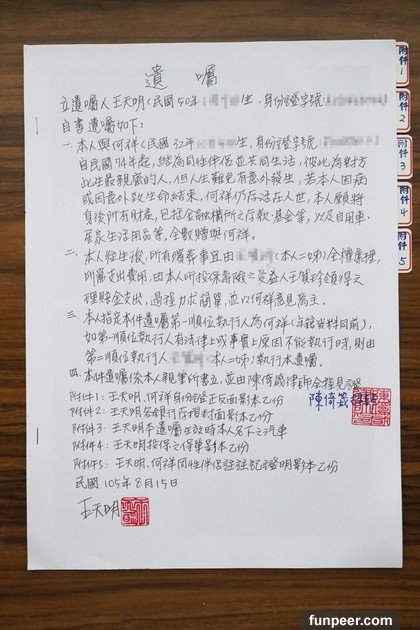 遺囑
立遺囑人王天明(民國50年 生,身份證字號
自書遺囑如下:
一、本人與何祥(民國32年 生,身份證字號
自民國74年起,結為同性伴侶並共同生活,彼此為對方
此生最親蜜的人,但人生難免有意外發生,若本人因病
或因意外致生命結束,何祥仍存活在人世,本人願將
身後所有財產,包括金融機構所之存款、基金等,以及自用車、
居家生活用品等,全數贈與何祥。
二、本人往生後,所有殯喪事宜由 (本人二姊)全權處理,
所需支出費用,由本人所投保壽險之受益人王 珍領得之
理賠金支出,過程力求簡單,並以何祥意見為主。
三、本人指定本件遺囑第一順位執行人為何祥(年籍資料同前),
如第一順位執行人有法律上或事實上原因不能執行時,則由
第二順位執行人 本人二姊)執行本遺囑。
四、本件遺囑係本人親筆所書立,並由陳倚箴律師全程見證
陳倚箴
附件1:王天明、何祥身分證正反面影本乙份
附件2:王天明各銀行存摺封面影本乙份
附件3:王天明本遺囑生效時本人名下之汽車
附件4:王天明投保之保單影本乙份
附件5:王天明、何祥同性伴侶註記證明影本乙份
民國105年8月15日
王天明
附件1
附件2
附件3
附件4
附件5
funpeer.com